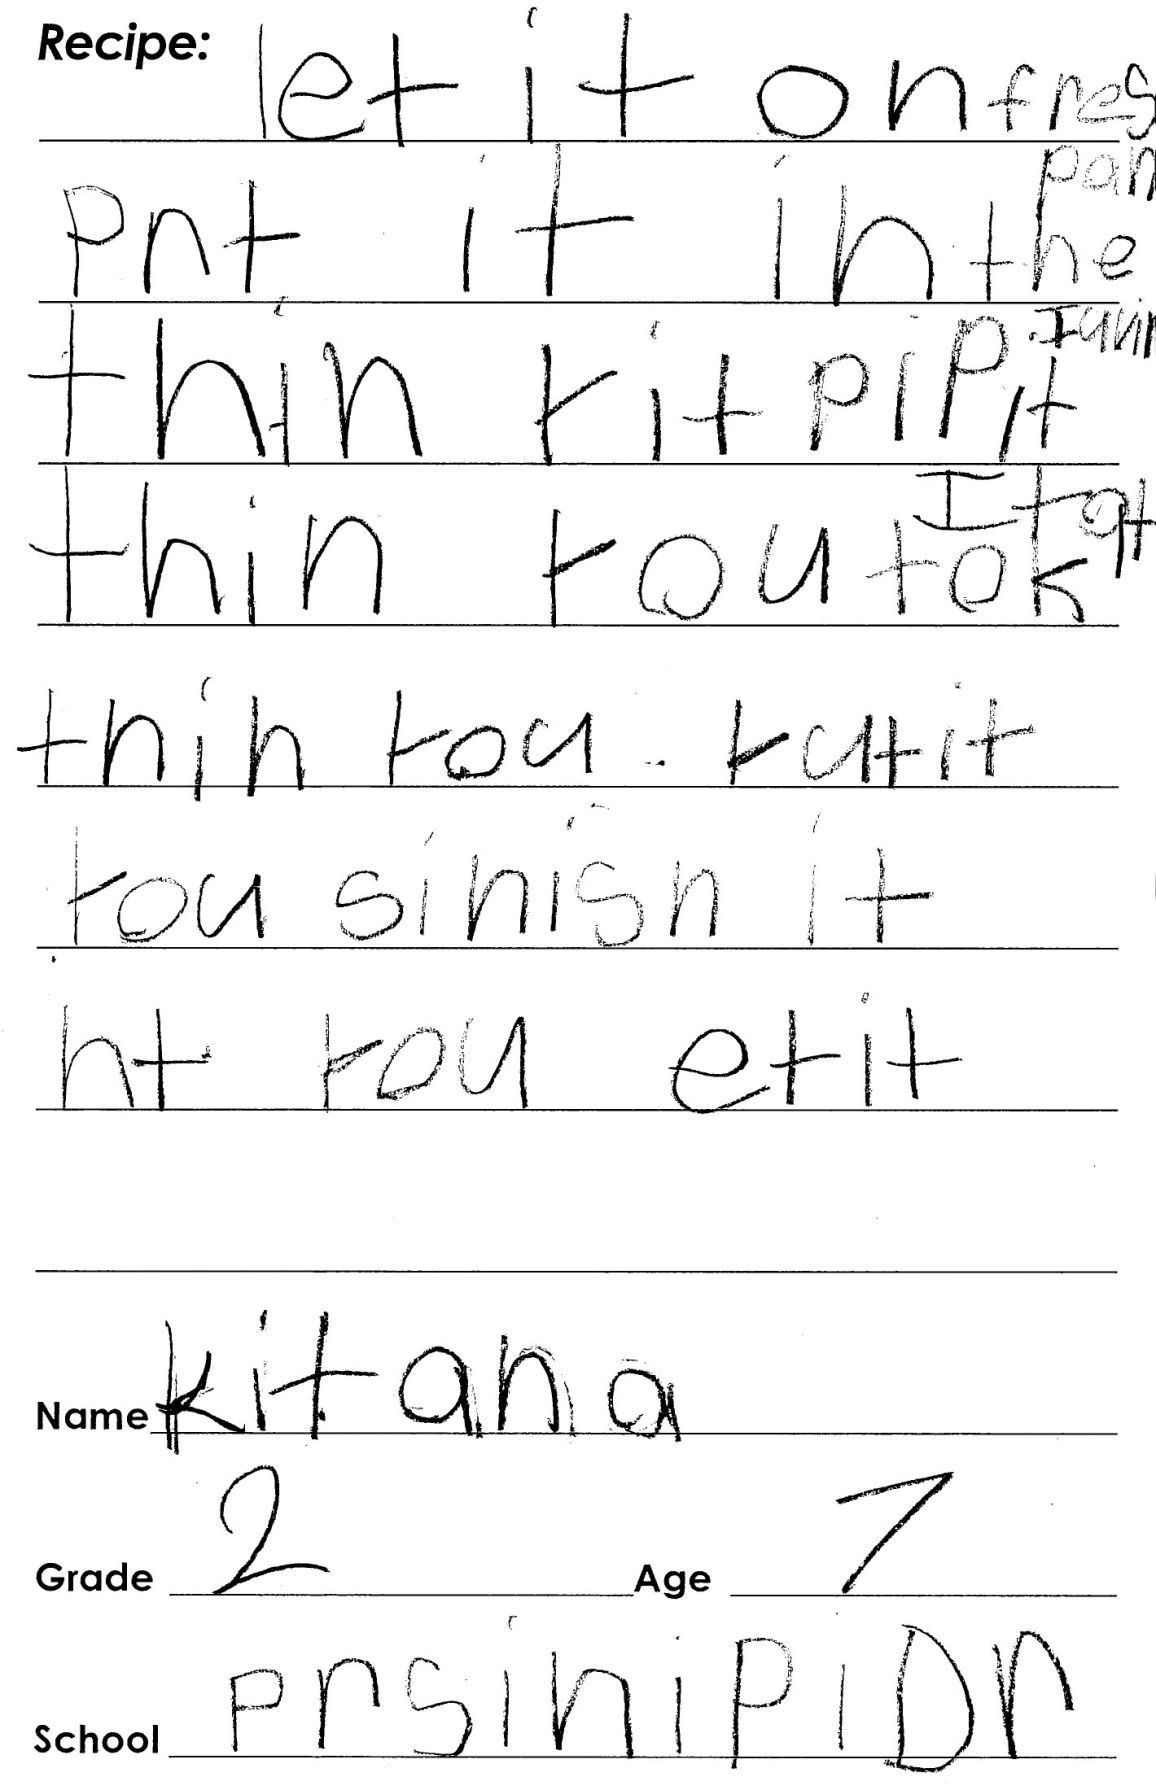 Recipe: let it on fres
pan
pnt it in the
thin kit pip it
I tat
thin kou tok
thin kou. kutit
kou sinish it
nt kou etit
Name kitana
Grade 2 Age 7
School prsinipiDr